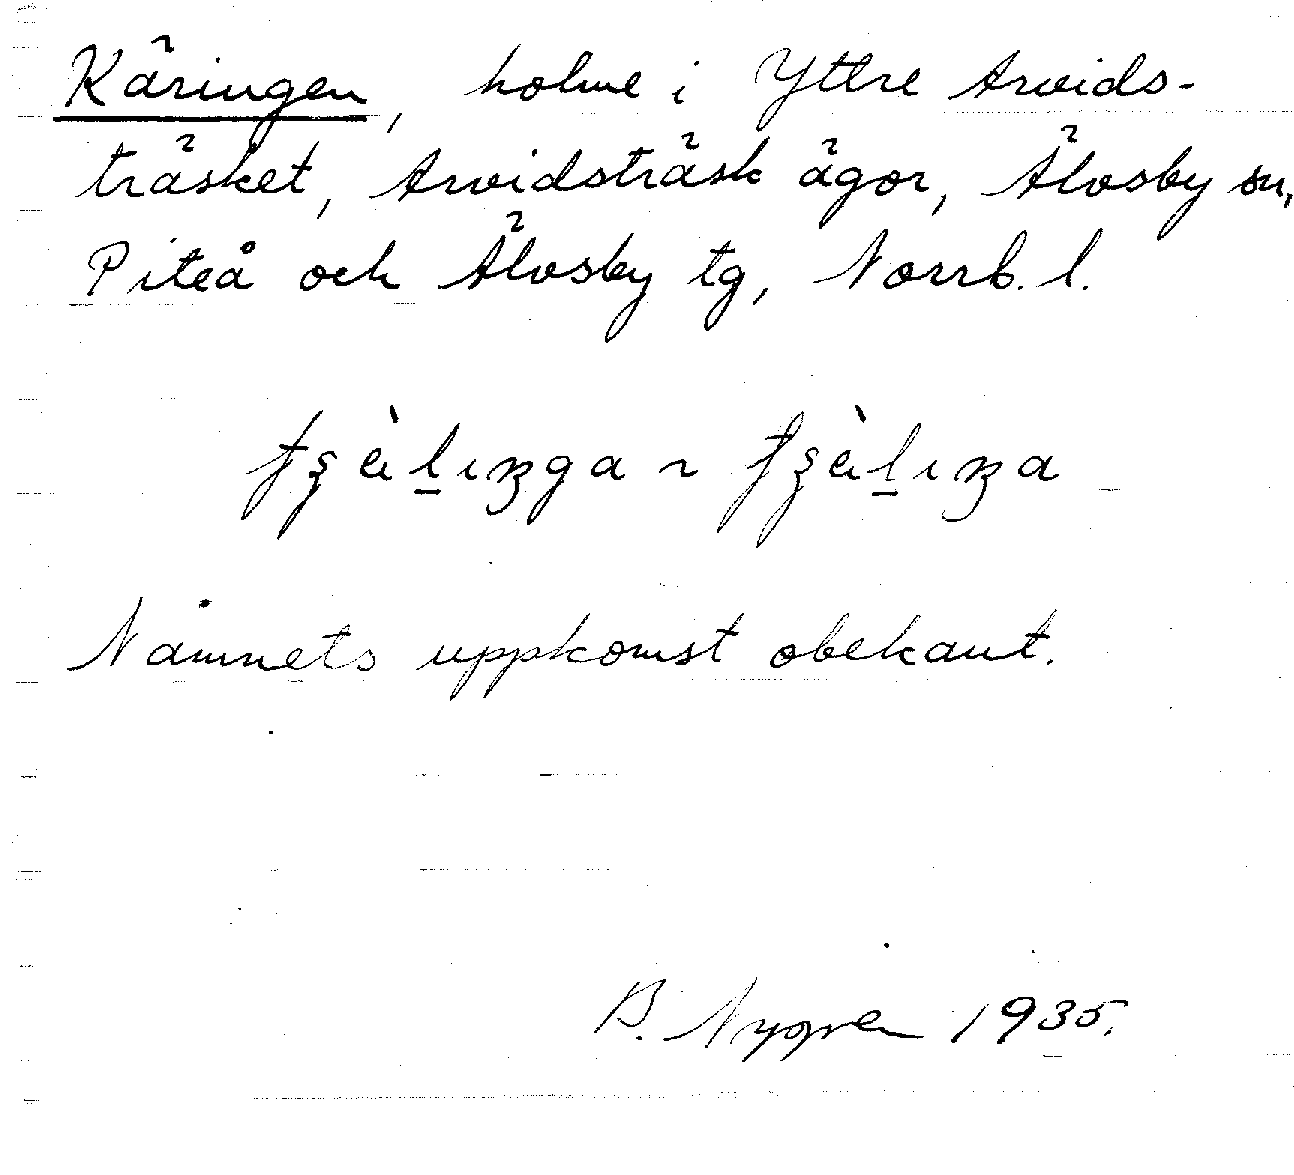 Käringen, holme i Yttre Arvids-
träsket, Arvidsträsk ägor, Älvsby sn,
Piteå och Älvsby tg, Norrb. l.
Namnets uppkomst obekant.
B. Nygren 1935.